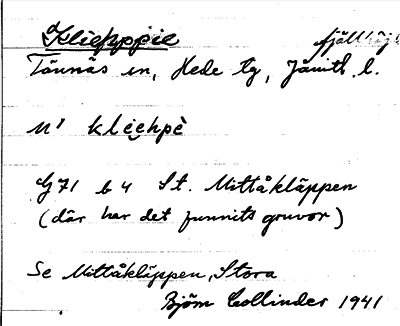 Kliehppie fjällhöjd
Tännäs sn, Hede tg, Jämtl. l.
n' kliehpè
G 71 b 4 St. Mittåkläppen
(där har det funnits gruvor)
Se Mittåkläppen, Stora
Björn Collinder 1941